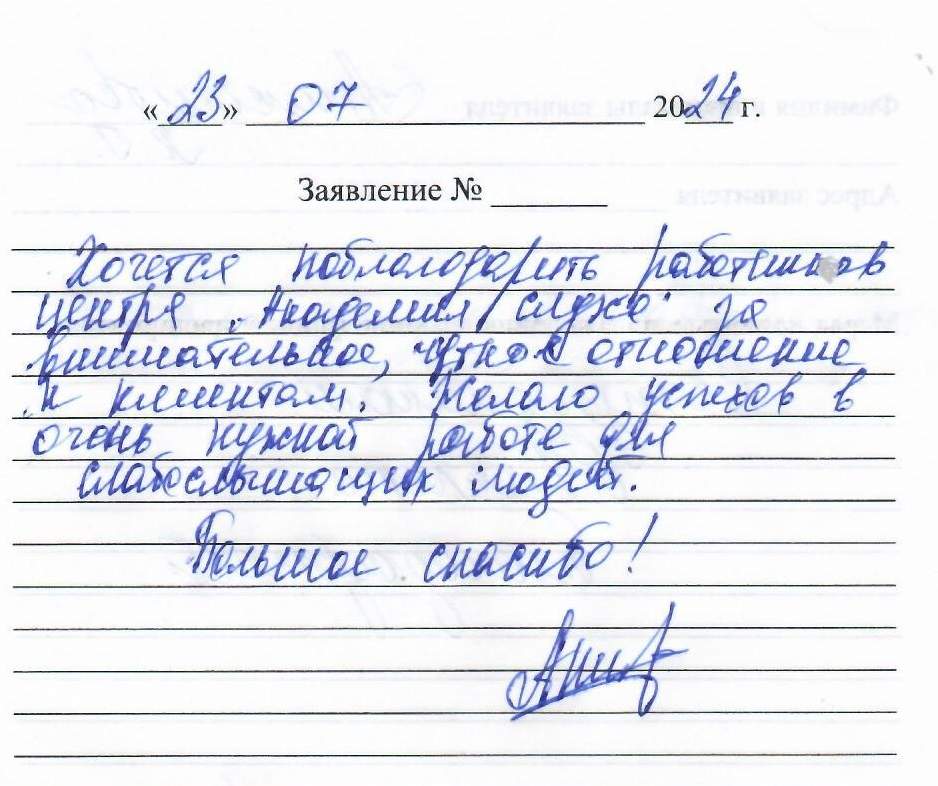 «23» 07 2024 г.
Заявление № ______
Хочется поблагодарить работников
центра "Академия слуха" за
внимательное, чуткое отношение
к клиентам. Желаю успехов в
очень нужной работе для
слабослышащих людей.
Большое спасибо!